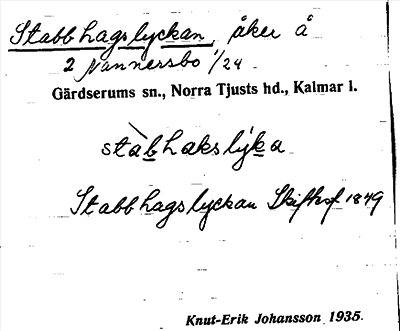 Stabbhagslyckan, åker å
2 Nannersbo 1/24.
Gärdserums sn., Norra Tjusts hd., Kalmar l.
stàbhakslýka
Stabbhagslyckan Skifthof 1849
Knut-Erik Johansson 1935.